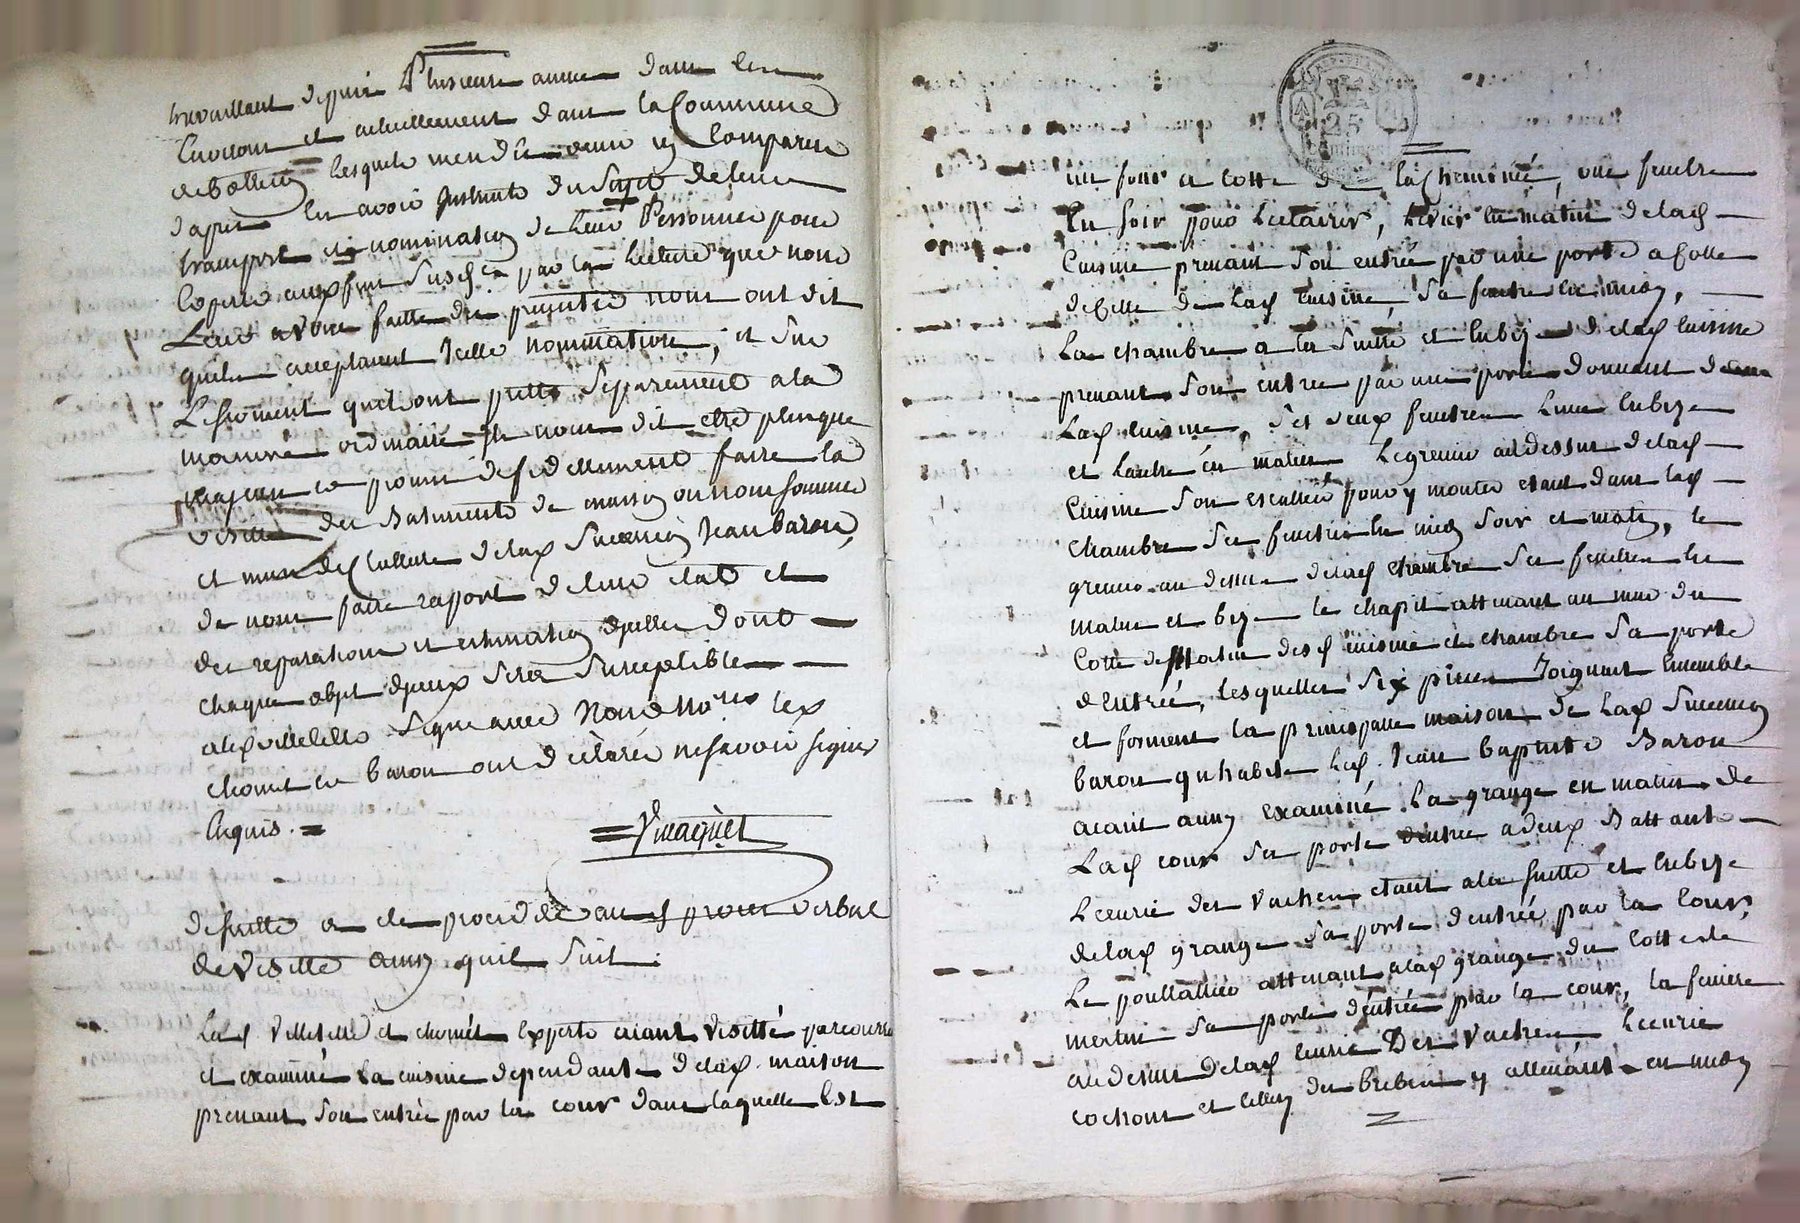 travaillant depuis Plusieurs année dans les
Environs et actuellement dans la Commune
lesquels mendé venir icy Comparus
dapres les avoir Instruits du Sujet de leur
transport et nomination de Leur Personnes pour
Experts aux fins susd par la lecture que nous
Leur avons faitte des presentes nous ont dit
quils acceptaient Icelle nommination, et sur
Le serment quils ont pretté separement a la
maniere ordinaire Ils nous dit etre plusque
majeurs et promis de fidellement faire la
visitte des Batiments de maison ou nous sommes
et murs de Cullture de lad Succession Jean baron,
de nous faire rapport de leur etat et
des reparations et estimation d'jcelles dont
chaque objet d'jceux sera susceptible
signe avec Nous Nores les
chomet et baron ont déclaré ne savoir signer
Enquis.
de suitte a été procédé au d proces verbal
de Visitte ainsy quil suit:
Lesd Villetelle et chomét Experts aiant visitté parcourru
et examiné la cuisine dependante de lad. maison
prenant son entrée par la cour dans laquelle Est
25 Centimes
un four a cotté de la Cheminéé, une fenetre
En soir pour Leclairer, Levier en matin de lad
Cuisine prenant son entréé par une porte a Cotté
de Celle de lad cuisine sa fenetre en midy,
La chambre a la suitte et En bize de lad Cuisine
prenant son entree par une porte donnant dans
Lad cuisine, ses deux fenetres Lune En bize
et Lautre en matin Le grenier au dessus de lad
Cuisine son escallier pour y monter etant dans lad
chambre ses fenetres En midy soir et matin, le
grenier au dessus de lad chambre ses fenetres En
matin et bize le chapit attenant au mur du
Cotté de Matin desd cuisine et chambre sa porte
d'entréé, Lesquelles six pieces Joignant Ensemble
et forment la principalle maison de Lad Succession
baron qu habite Led. Jean baptiste Baron
aiant aussy examiné la grange en matin de
Lad cour sa porte d'entree a deux Battants
Lecurie des Vaches etant a la suitte et En bize
de lad grange sa porte d'entréé par la Cour,
Le poullallier attenant a lad grange du Cotté de
matin sa porte d'entréé par la cour, la feniere
au dessus de lad Ecurie Des Vaches, Lecurie
cochons et celles des brebis y attenant en midy